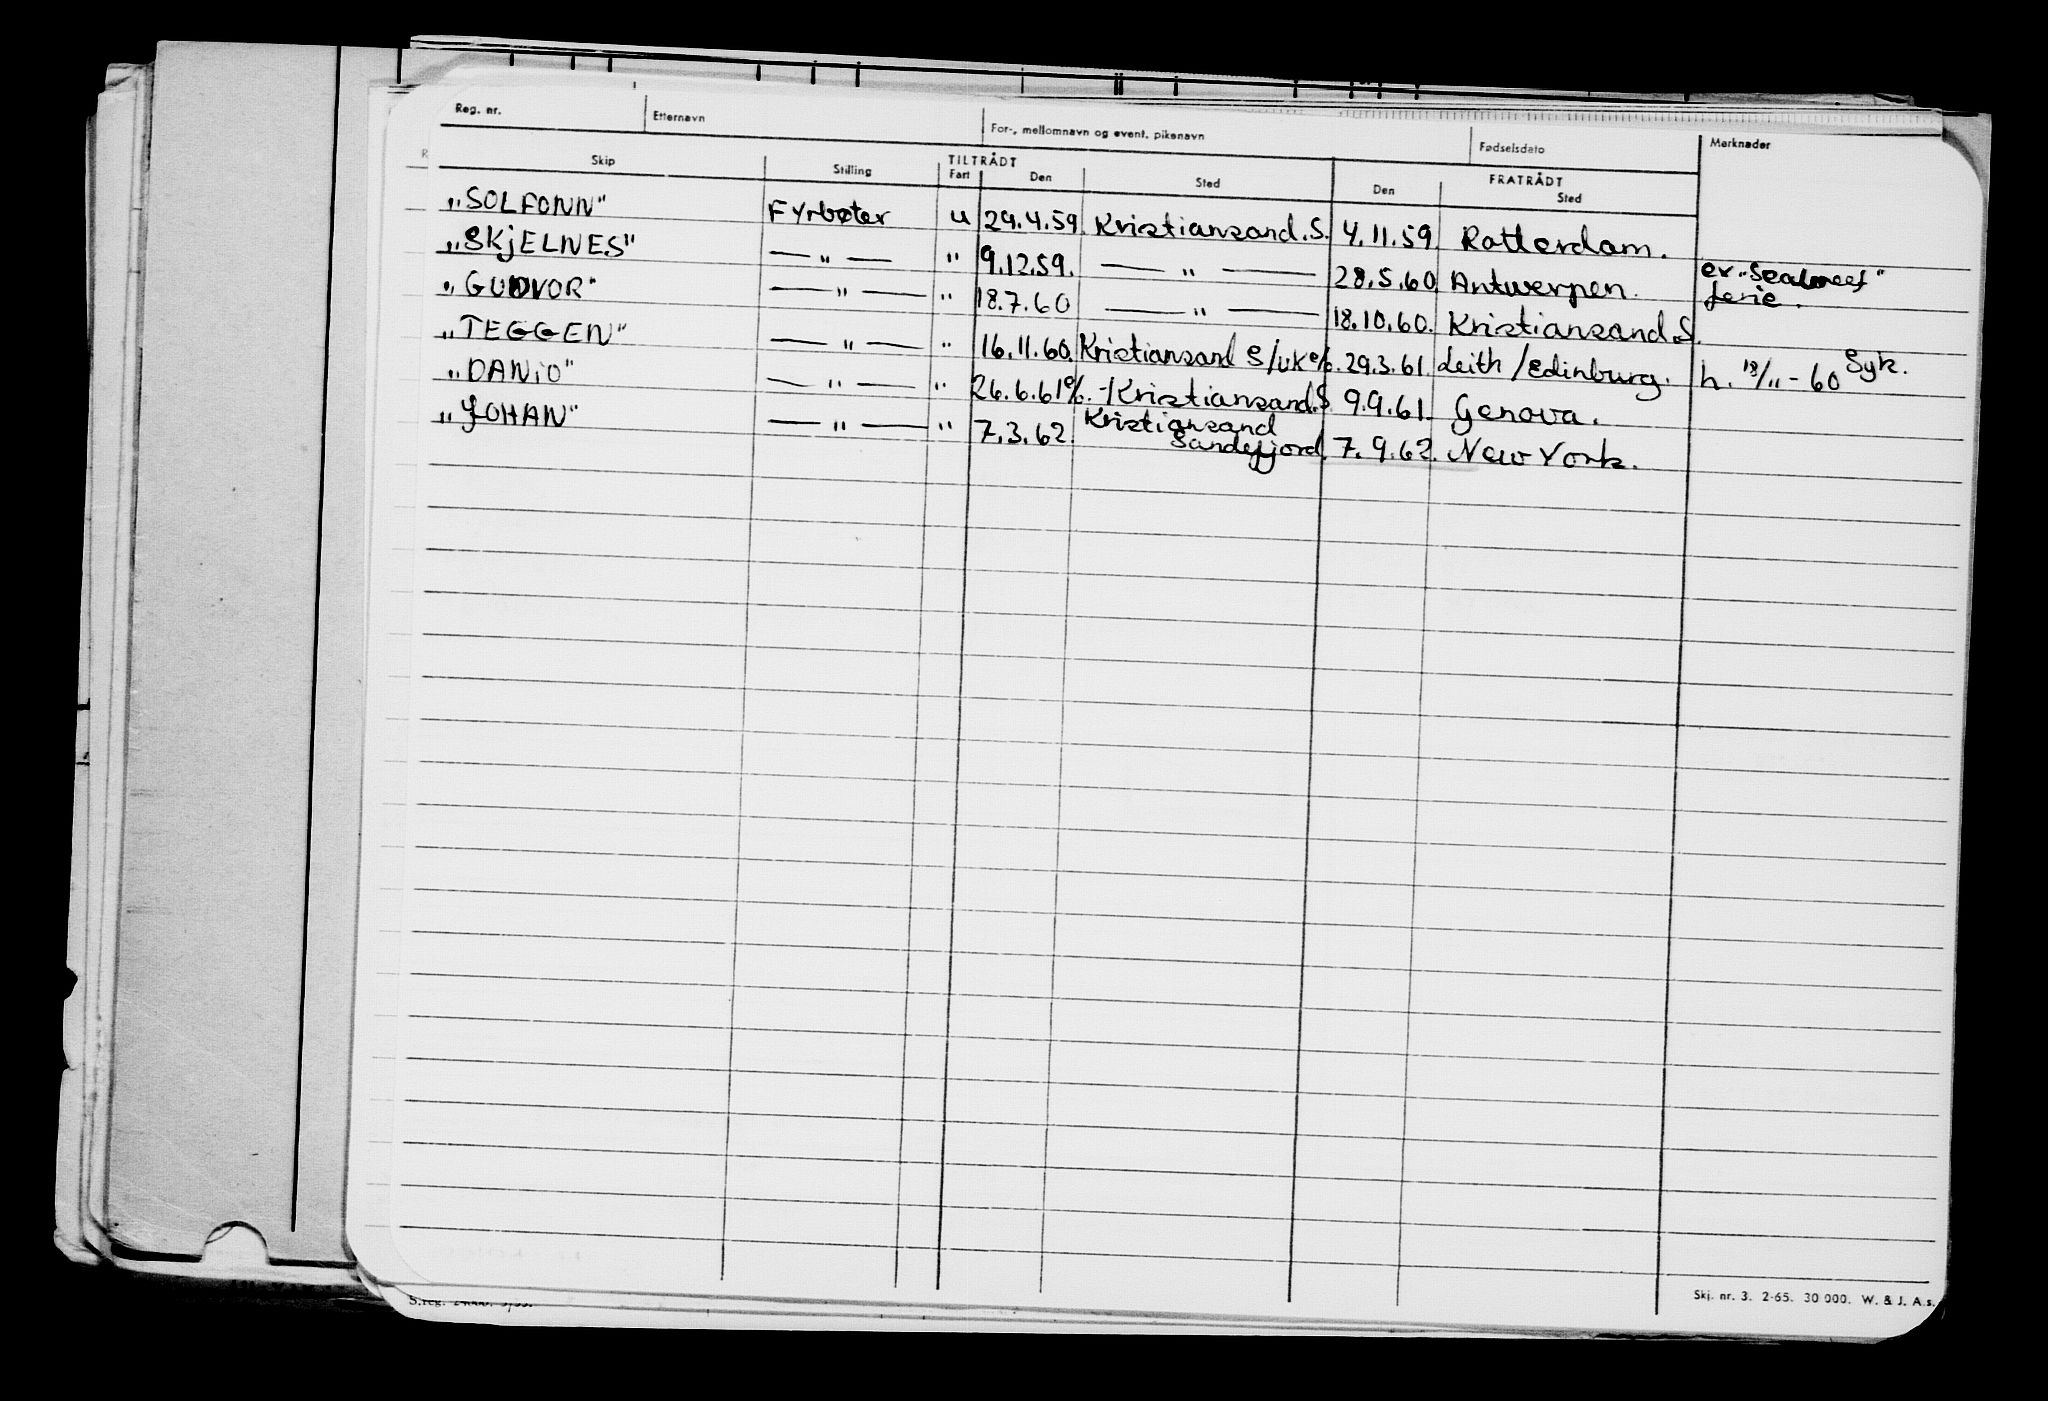 Reg. nr. Etternavn For-, mellomnavn og event. pikenavn Fødselsdato Marknader
Skip Stilling TILTRÅDT Fart Den Sted FRATRÅDT Den Sted
"SOLFONN" Fyrbøter u 29.4.59. Kristiansand.S. 4.11.59. Rotterdam.
"SKjELNES" — " — " 9.12.59. — " — 28.5.60. Antwerpen. ex "
"GUDVOR" — " — " 18.7.60 — " — 18.10.60. Kristiansand.S. ferie.
"TEGGEN" — " — " 16.11.60. Kristiansand S/UK e/o. 29.3.61. Leith/Edinburg. h. 18/11-60 Syk.
"DANiO" — " — " 26.6.61 e/o. -/Kristiansand.S 9.9.61. Genova.
"JOHAN" — " — " 7.3.62. Kristiansand 7.9.62. New York.
Sandefjord.
Skj. nr. 3. 2-65. 30 000. W. & J. A.s.